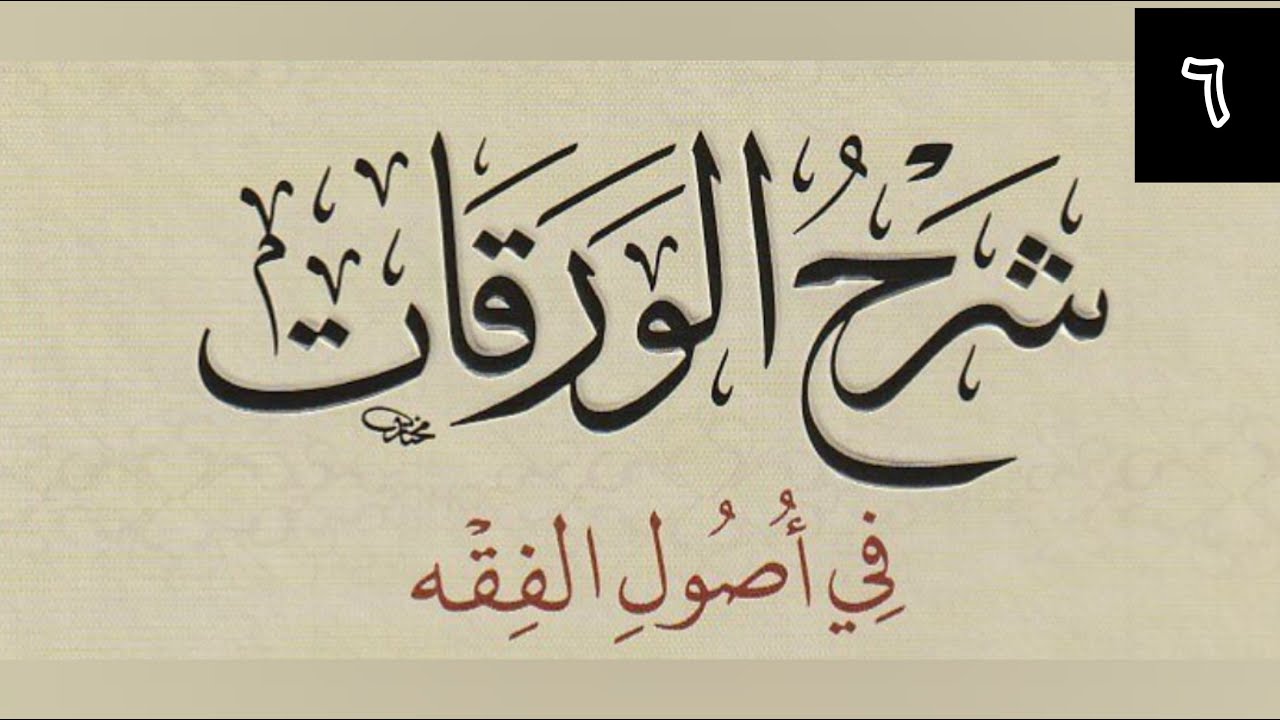 ٦
شَرْحُ الوَرَقَات
فِي أُصُولِ الفِقْه